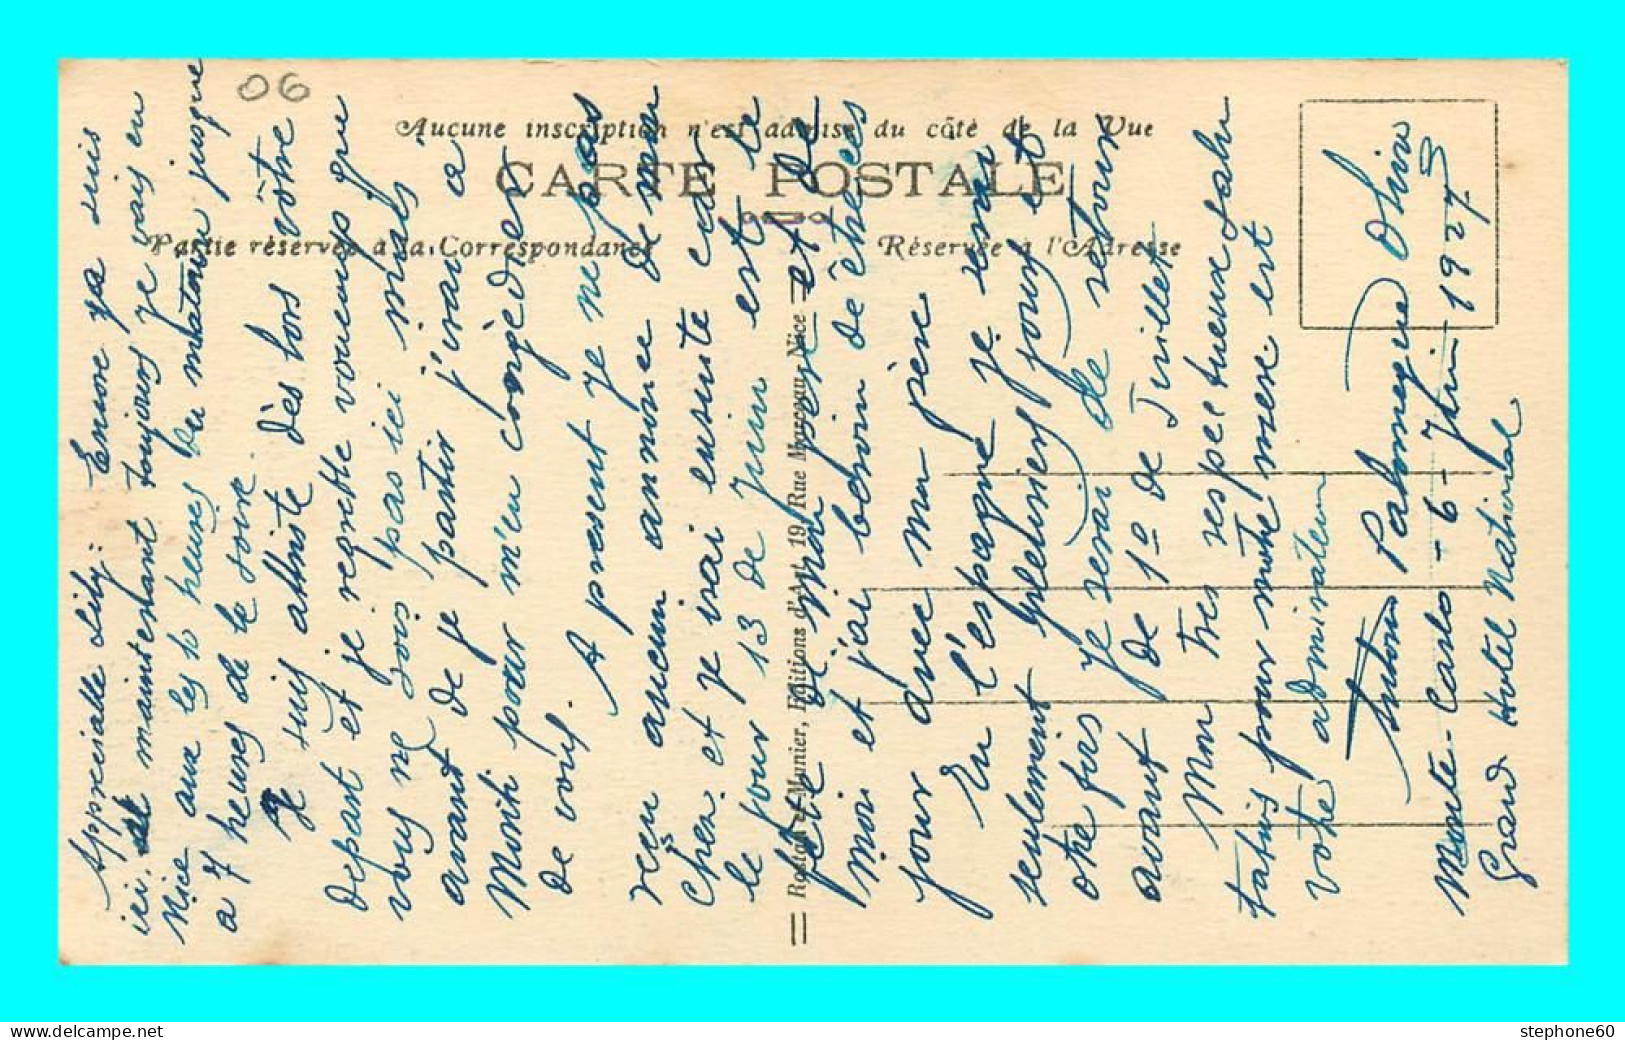 06
Aucune inscription n'est admise du côté de la Vue
CARTE POSTALE
Partie réservée à la Correspondance
Réservée à l'Adresse
Rostan et Munier, Editions d'Art, 19, Rue Marceau, Nice
Appreciable Lily: Encore ya suis
ici, et maintenant toujours je vais en
Nice aux les 10 heures du matour jusque
a 7 heures de le soire.
Je suis attriste dès lors vôtre
depart et je regrette voueusp que
vous ne dois pas ici mais
avant de je partir j'vrai a
Monti pour m'en congèdier
de vous.
A present je ne pas
reçu aucun annonce de mon
Chez. et je vrai ensuite car
le jour 13 de Juin est le
fête de mon pere et de
moi et j'ai besoin de êtrees
jour avec mon pére
En l'espagne je serai
seulement plusiers jours et
otre fois je serai de retour
avant de 1º de Juillet
Mon tres respectueux salu
tatios pour mote mere est
votè admirateur
Antonio Palomeque Olivo
Monte-Carlo - 6 - Juin - 1927
Grand Hotel National
stephone60